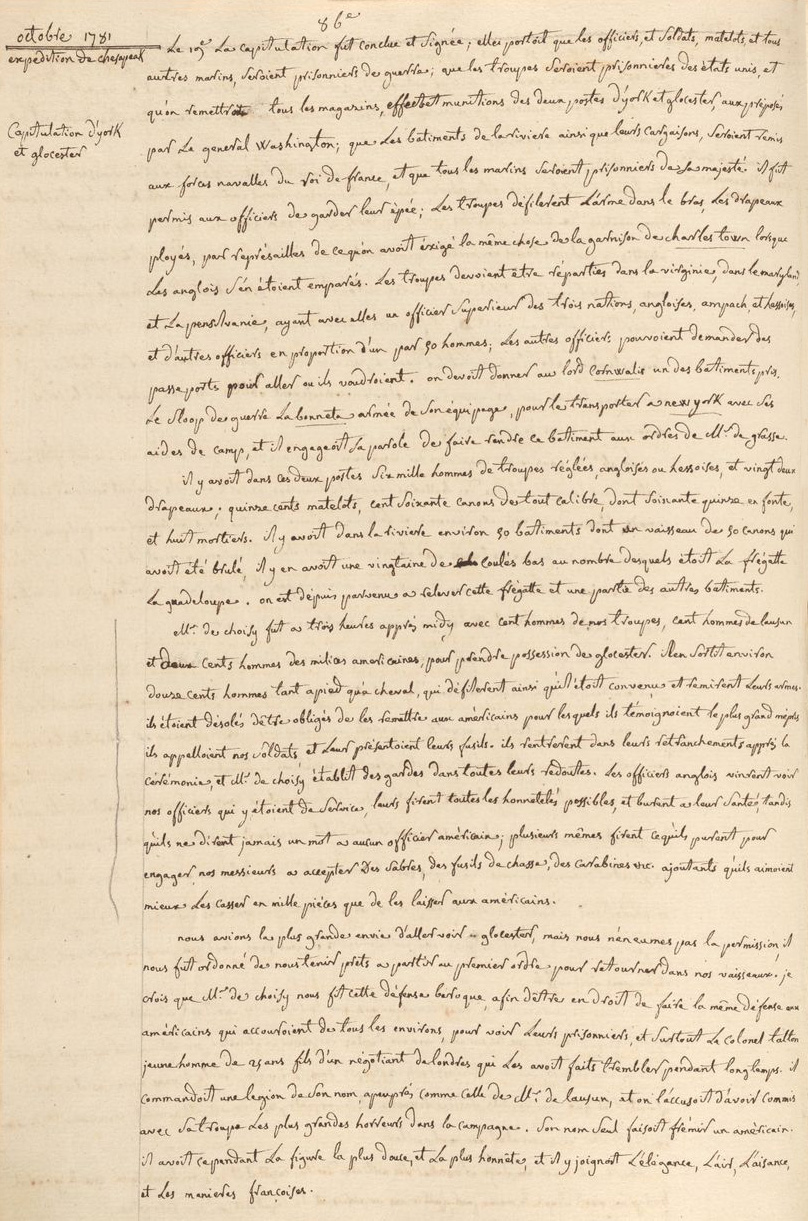 86e
octobre 1781
expédition de chesapeak
Capitulation d'york
et glocester
Le 19e La capitulation fut conclue et signée; elles portoit que les officiers, et soldats, matelots, et tous
autres marins, seroient prisonniers de guerre; que les troupes seroient prisonnieres des états unis, et
qu'on remettroit tous les magazins, effets et munitions des deux postes d'york et glocester, aux préposés
par Le general Washington; que Les bâtiments de la riviere ainsi que leurs cargaisons, seroient remis
aux forces navalles du roi de france, et que tous les marins seroient prisonniers de sa majesté il fut
permis aux officiers de garder leur épée; Les troupes défilerent L'arme dans le bras, Les drapeaux
ployés, par représailles de cequ'on avoit éxigé la même chose de la garnison de charles town lorsque
Les anglois s'en étoient emparés. Les troupes devoient être réparties dans la virginie, dans le maryland
et La pensilvanie, ayant avec elles un officier superieur des trois nations, angloises, anspach, et hessoises,
et d'autres officiers en proportion d'un par 50 hommes; Les autres officiers pouvoient demander des
passe ports pour aller ou ils voudroient. on devoit donner au lord Cornwalis un des bâtiments pris.
Le sloop de guerre La bonneta armée de son équipage, pour le transporter a new york avec ses
aides de camp, et il engageoit sa parole de faire rendre ce batiment aux ordres de Mr. de grasse.
il y avoit dans ces deux postes six mille hommes de troupes réglées, angloises ou hessoises, et vingt deux
drapeaux; quinze cents matelots, cent soixante canons de tout calibre, dont soixante quinze en fonte,
et huit mortiers. il y avoit dans la riviere environ 50 bâtiments dont un vaisseau de 50 canons qui
avoit été brulé, il y en avoit une vingtaine de coulés bas au nombre desquels étoit La frégatte
La guadeloupe. on est depuis parvenu a relever cette frégatte et une partie des autres batiments.
Mr. de choisy fut a trois heures apprés midy avec cent hommes de nos troupes, cent hommes de lausun
et deux cents hommes des milices americaines, pour prendre possession de glocester. il en sortit environ
douze cents hommes tant a pied qu'a cheval, qui défilerent ainsi qu'il étoit convenu et remirent Leurs armes.
ils étoient désolés d'être obligés de les remettre aux américains pour lesquels ils témoignoient le plus grand mépris
ils appelloient nos soldats, et Leur présentoient leurs fusils. ils rentrerent dans leurs retranchements apprés la
cérémonie, et Mr. de choisy établit des gardes dans toutes leurs redoutes. Les officiers anglois vinrent voir
nos officiers qui y étoient de service, leurs firent toutes les honnetetés possibles, et burent a leur santé, tandis
qu'ils ne dirent jamais un mot a aucun officier américain; plusieurs mêmes firent cequ'ils purent pour
engager nos messieurs a accepter Des sabres, des fusils de chasse, des carabines etc. ajoutants qu'ils aimoient
mieux Les casser en mille piéces que de les laisser aux américains.
nous avions la plus grande envie d'aller voir glocester, mais nous n'en eumes pas la permission, il
nous fut ordonné de nous tenir prêts a partir au premier ordre pour retourner dans nos vaisseaux. je
crois que Mr. de choisy nous fit cette défense baroque, afin d'être en droit de faire la même défense aux
américains qui accouroient de tous les environs, pour voir Leurs prisonniers, et surtout Le colonel talton
jeune homme de 25 ans fils d'un négotiant de londres qui Les avoit faits trembler pendant longtemps. il
commandoit une legion de son nom, apeuprés comme celle de Mr. de lausun, et on l'accusoit d'avoir commis
avec sa troupe Les plus grandes horreurs dans la campagne. son nom seul faisoit frémir un américain.
il avoit cependant La figure la plus douce, et La plus honnête, et il y joignoit L'élégance, L'air, L'aisance,
et Les manieres françoises.